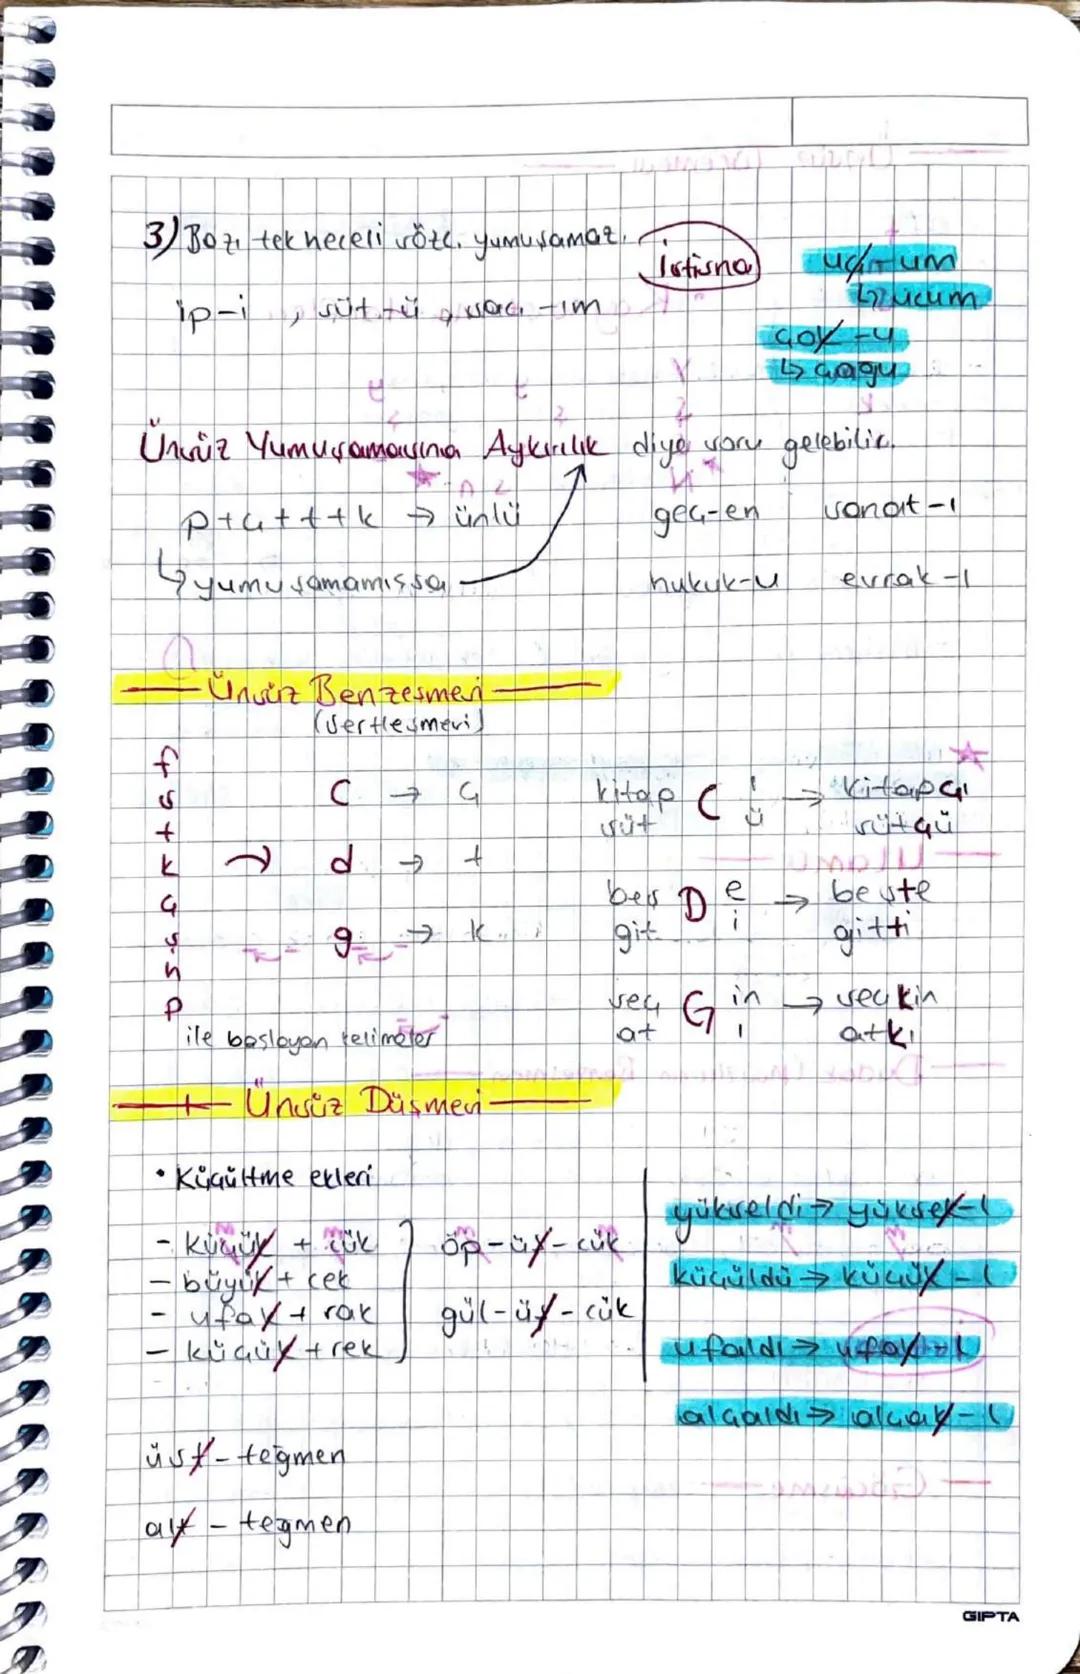 3) Bazı tek heceli sözc. yumuşamaz.
İstisna
uç-um
↳ ucum
ip-i, süt-ü, saç-ım
çok-u
↳ çoğu
Ünsüz Yumuşamasına Aykırılık diye soru gelebilir.
p+ç+t+k → ünlü
geç-en
sanat-ı
↳ yumuşamamışsa
hukuk-u
evrak-ı
Ünsüz Benzeşmesi
(Sertleşmesi)
f
s
t
k
ç
ş
h
p
c → ç
d → t
g → k
kitap
süt
C
ı
ü
→ kitapçı
sütçü
beş
git
D
e
i
→ beşte
gitti
seç
at
G
in
ı
→ seçkin
atkı
ile başlayan kelimeler
Ünsüz Düşmesi
• Küçültme ekleri
- Küçük + cük
- büyük + cek
- ufak + rak
- küçük + rek
öp-üş-cük
gül-üş-cük
yükseldi → yüksek-l
küçüldü → küçük-l
ufaldı → ufak-l
alçaldı → alçak-l
üst-teğmen
alt-teğmen
GIPTA